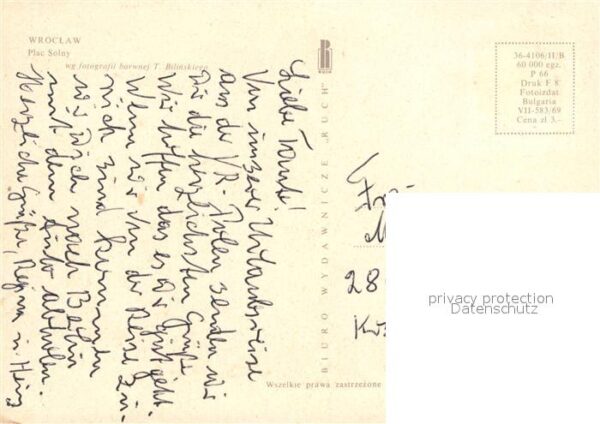 WROCŁAW
Plac Solny
wg fotografii barwnej T. Bilińskiego
Liebe Tante!
Von unserer Urlaubsreise
aus der VR. Polen senden wir
Dir die herzlichsten Grüße
Wir hoffen das es Dir gut geht.
Wenn wir von der Reise zu-
rück sind kommen
wir Dich nach Berlin
mit dem Auto abholen.
Herzliche Grüße, Regina u. Heinz
BIURO WYDAWNICZE „RUCH"
36-4106/II/B
60 000 egz.
P 66
Druk F 8
Fotoizdat
Bulgaria
VII-583/69
Cena zł 3,-
28
privacy protection
Datenschutz
Wszelkie prawa zastrzeżone